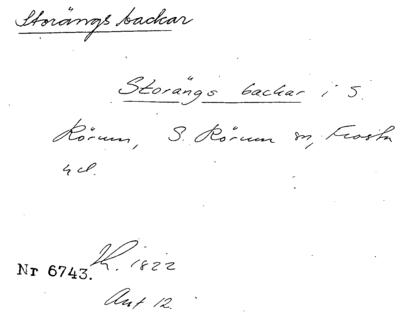 Storängs backar
Storängs backar i S.
Rörum, S. Rörum sn, Frosta
hd.
Nr 6743. K. 1822
Ant 12.